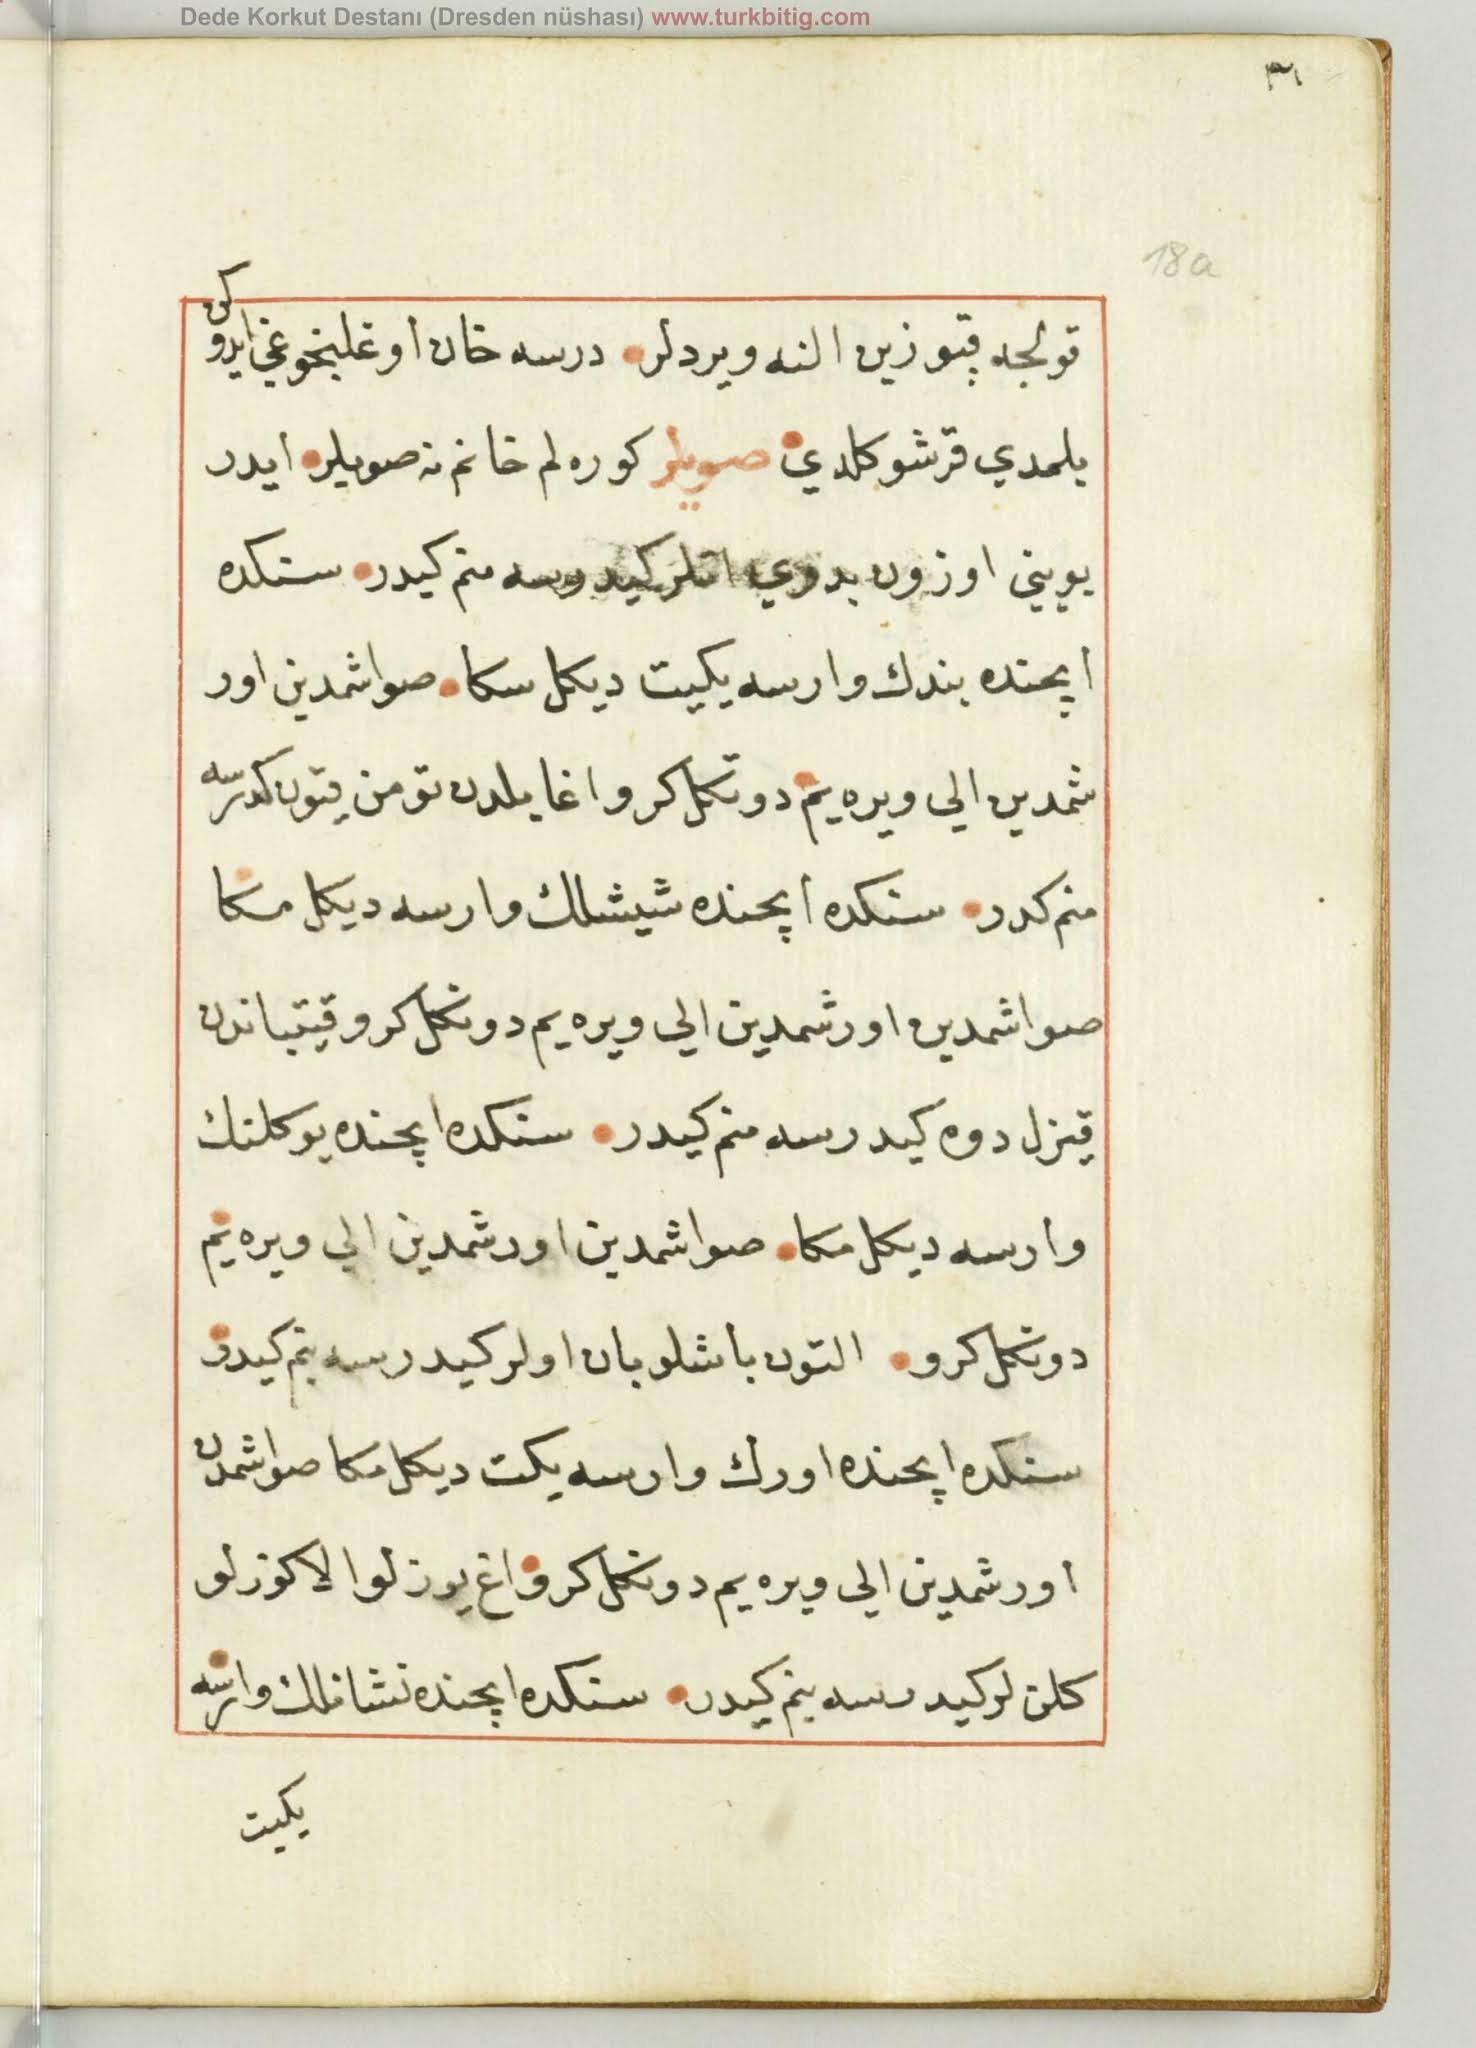 Dede Korkut Destanı (Dresden nüshası) www.turkbitig.com
٣١
18a
قولجه قپوزين النه ويردلر درسه خان اوغلنجوغي ايدوكن
بلمدي قرشو كلدي صويلر كوره لم خانم نه صويلر ايدر
بويني اوزون بدوي اتلر كيدرسه منم كيدر سنكده
اپچنده بندك وارسه يكيت ديكل مكا صواشمدين اور
شمدين الي ويره يم دونكل كرو اغايلدن تومن قيون كدرسه
منم كدر سنكده اپچنده شيشلك وارسه ديكل مكا
صواشمدين اورشمدين الي ويره يم دونكل كرو قيتباندن
قيزل دوه كيدرسه منم كيدر سنكده اپچنده يوكلتك
وارسه ديكل مكا صواشمدين اورشمدين الي ويره يم
دونكل كرو التون باشلو بان اولر كيدرسه بنم كيدر
سنكده اپچنده اورك وارسه يكت ديكل مكا صواشمدن
اورشمدين الي ويره يم دونكل كرو اغ يوزلو الا كوزلو
كلن لر كيدرسه بنم كيدر سنكده اپچنده نشانلك وارسه
يكيت